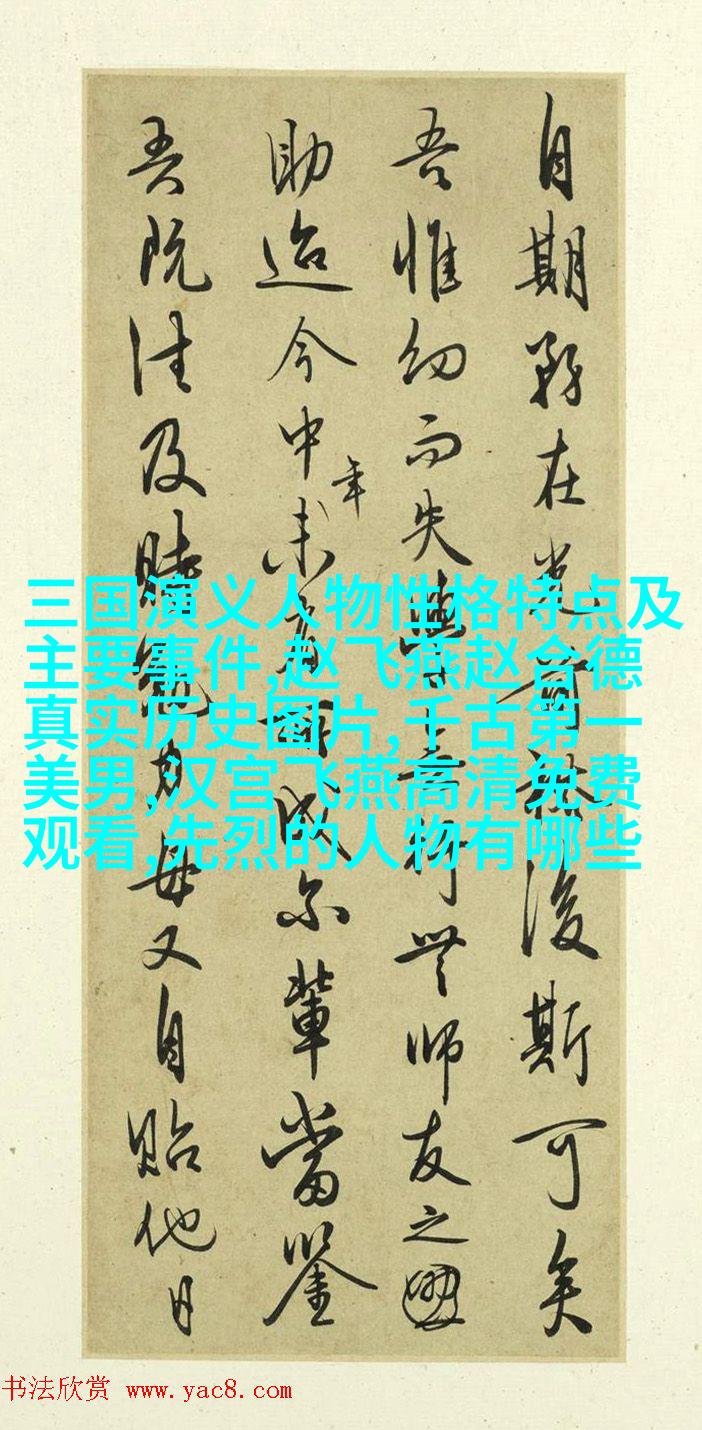 自期務在光前裕後斯可矣
吾惟幼而失學無行無師友之
助迨今中年未有所成尔輩當鑒
吾既往及時勉力毋又自貽他日
三国演义人物性格特点及
主要事件,赵飞燕赵合德
真实历史图片,千古第一
美男,汉宫飞燕高清免费
观看,先烈的人物有哪些
书法欣赏 www.yac8.com